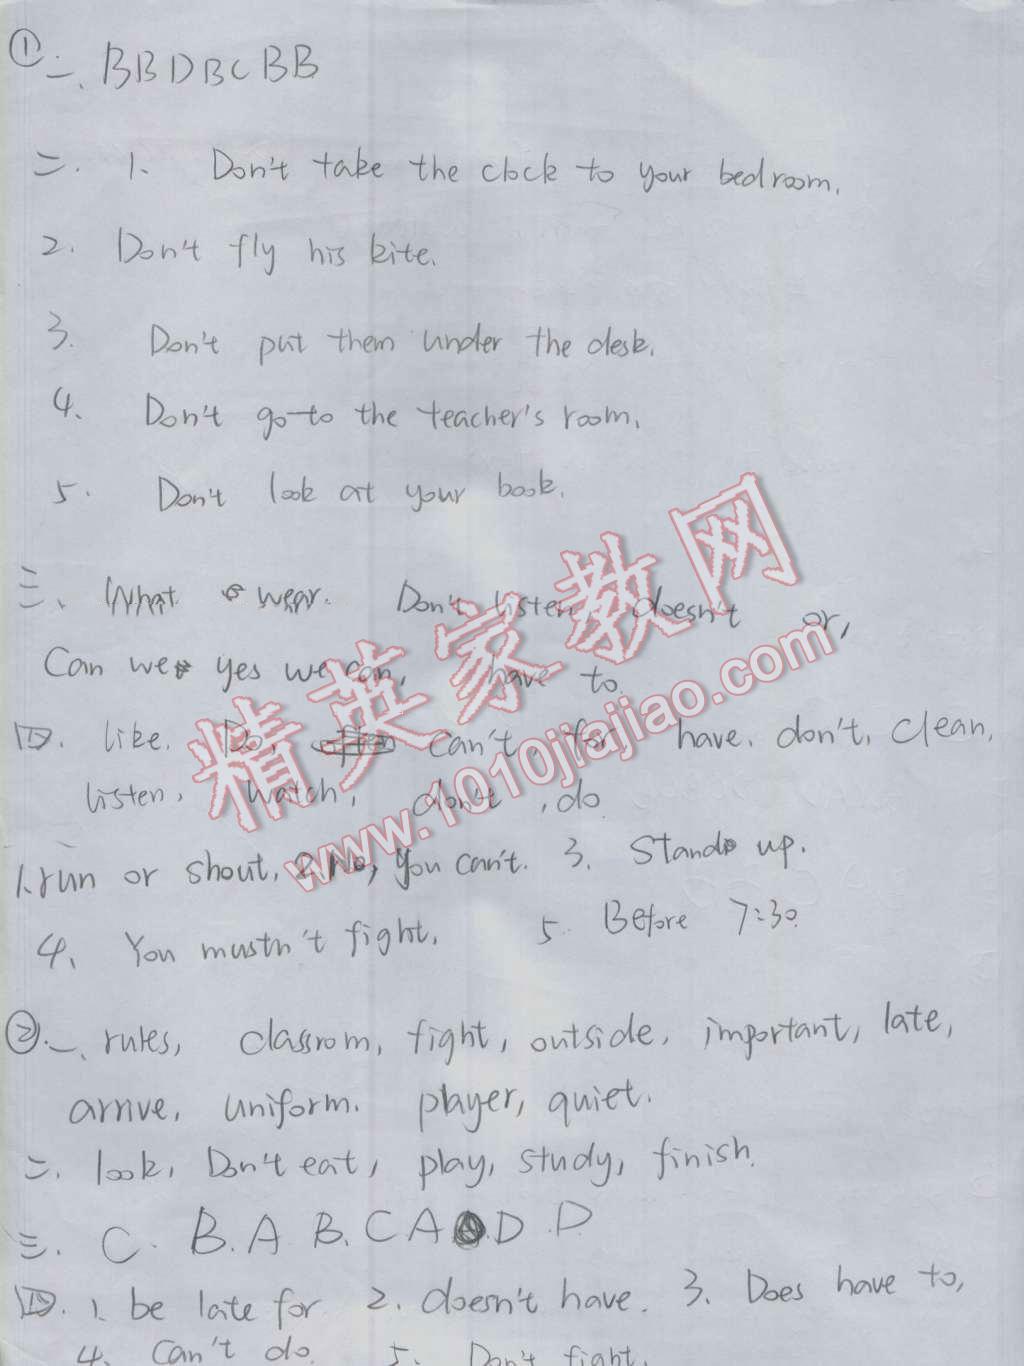 ① 一、BBDBCBB
二. 1. Don't take the clock to your bedroom.
2. Don't fly his kite.
3. Don't put them under the desk.
4. Don't go to the teacher's room.
5. Don't look at your book.
三、What wear. Don't listen, doesn't or,
Can we yes we can, have to.
四. like. Do, can't, for have, don't, clean,
listen, watch, don't, do
1. run or shout, 2. No, you can't. 3. Stand up.
4. You mustn't fight. 5. Before 7:30.
② 一、rules, classrom, fight, outside, important, late,
arrive, uniform. player, quiet.
二. look, Don't eat, play, study, finish.
三. C. B. A B. C A D. D
四. 1. be late for 2. doesn't have. 3. Does have to,
4. Can't do. 5. Don't fight.
精英家教网
www.1010jiajiao.com